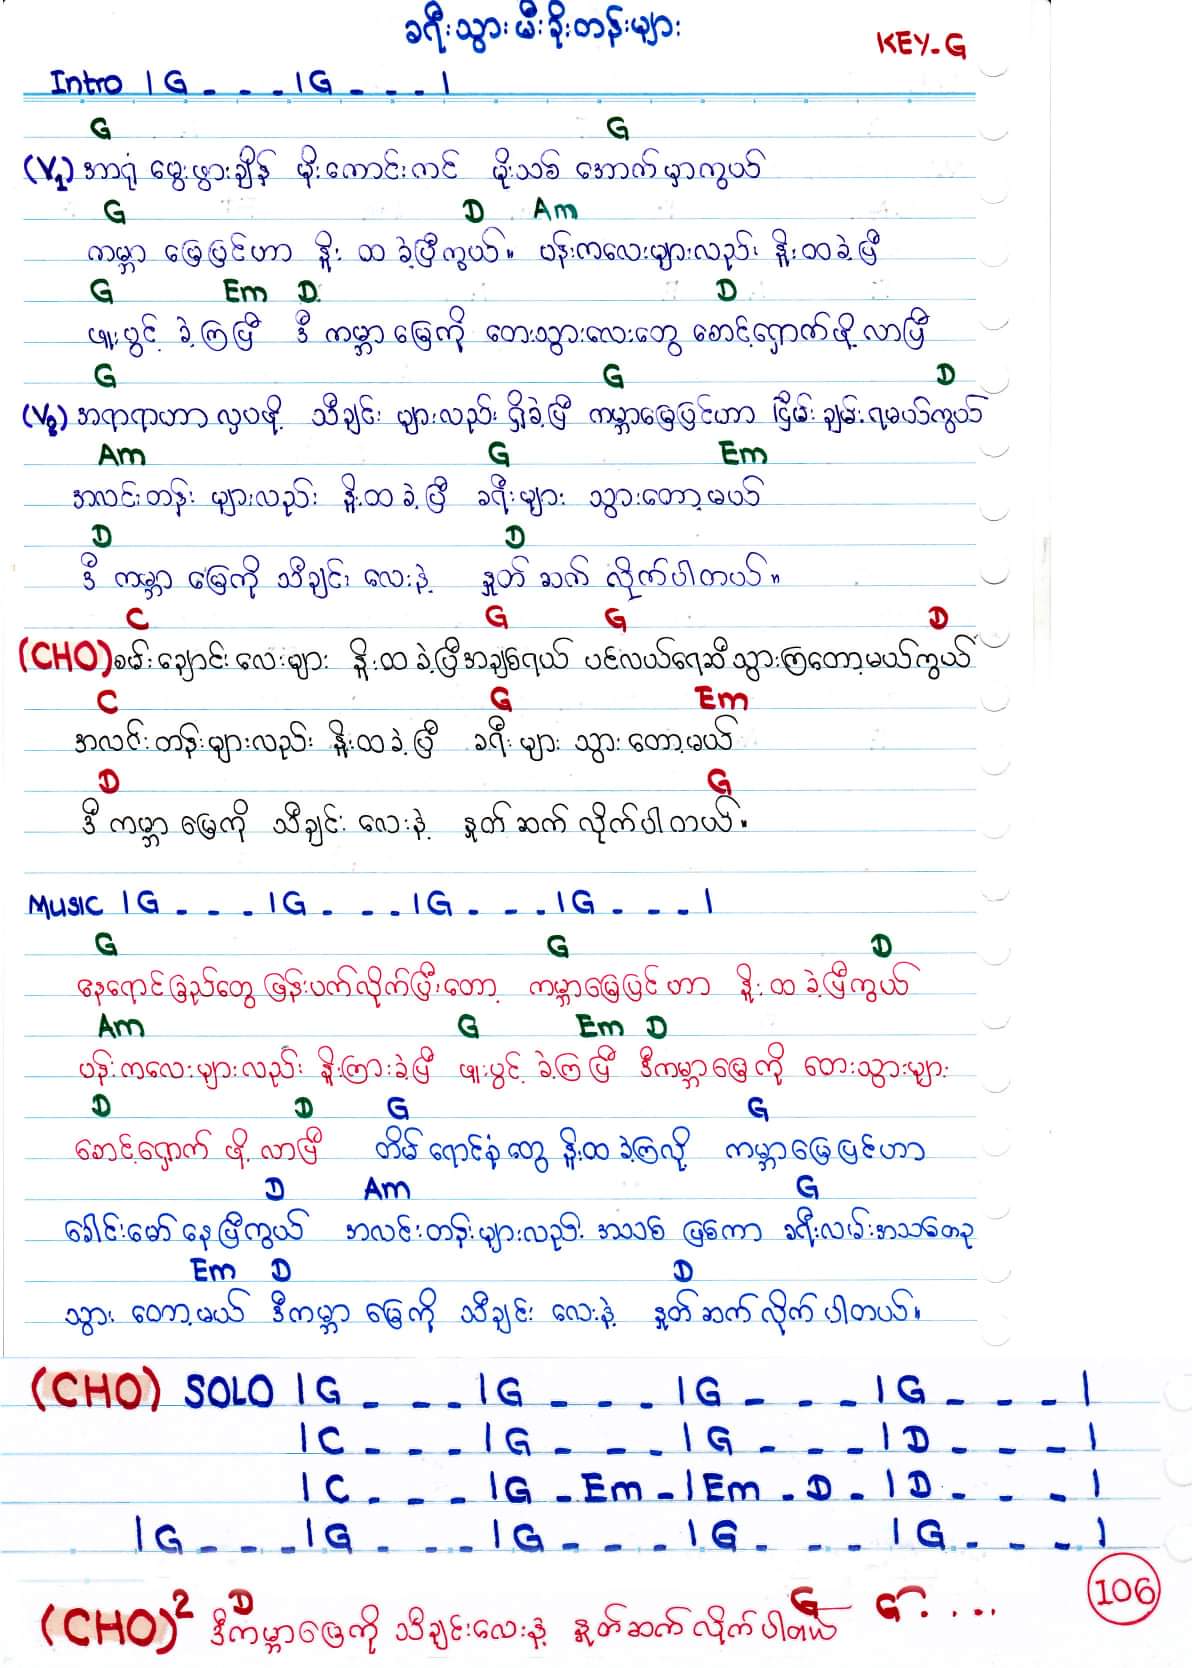 ခရီးသွားမီးခိုးတန်းများ
KEY-G
Intro | G - - - | G - - - |
G G
(V1) အာရုံ မွေးဖွားချိန် မိုးကောင်းကင် မိုးသစ် အောက်မှာကွယ်
G D Am
ကမ္ဘာ မြေပြင်ဟာ နိုး ထ ခဲ့ပြီကွယ်။ ပန်းကလေးများလည်း နိုးထခဲ့ပြီ
G Em D D
ဖူးပွင့် ခဲ့ကြပြီ ဒီ ကမ္ဘာမြေကို တေးသွားလေးတွေ စောင့်ရှောက်ဖို့ လာပြီ
G G D
(V2) အရာရာဟာ လှပဖို့ သီချင်း များလည်း ရှိခဲ့ပြီ ကမ္ဘာမြေပြင်ဟာ ငြိမ်းချမ်းရမယ်ကွယ်
Am G Em
အလင်းတန်း များလည်း နိုးထခဲ့ပြီ ခရီးများ သွားတော့မယ်
D D
ဒီ ကမ္ဘာ မြေကို သီချင်း လေးနဲ့ နှုတ်ဆက် လိုက်ပါတယ်။
C G G D
(CHO) စမ်းချောင်းလေးများ နိုးထခဲ့ပြီအချစ်ရယ် ပင်လယ်ရေဆီသွားကြတော့မယ်ကွယ်
C G Em
အလင်းတန်းများလည်း နိုးထခဲ့ပြီ ခရီးများ သွားတော့မယ်
D G
ဒီ ကမ္ဘာ မြေကို သီချင်း လေးနဲ့ နှုတ်ဆက် လိုက်ပါတယ်။
MUSIC | G - - - | G - - - | G - - - | G - - - |
G G D
နေရောင်ခြည်တွေ ဖြန်းပက်လိုက်ပြီးတော့ ကမ္ဘာမြေပြင်ဟာ နိုးထခဲ့ပြီကွယ်
Am G Em D
ပန်းကလေးများလည်း နိုးကြားခဲ့ပြီ ဖူးပွင့် ခဲ့ကြပြီ ဒီကမ္ဘာမြေကို တေးသွားများ
D D G G
စောင့်ရှောက် ဖို့ လာပြီ တိမ်ရောင်စုံတွေ နိုးထခဲ့ကြလို့ ကမ္ဘာမြေပြင်ဟာ
D Am G
ခေါင်းမော်နေပြီကွယ် အလင်းတန်းများလည်း အသစ် ဖြစ်ကာ ခရီးလမ်းအသစ်တခု
Em D D
သွား တော့မယ် ဒီကမ္ဘာမြေကို သီချင်း လေးနဲ့ နှုတ်ဆက်လိုက်ပါတယ်။
(CHO) SOLO | G - - - | G - - - | G - - - | G - - - |
| C - - - | G - - - | G - - - | D - - - |
| C - - - | G - Em - | Em - D - | D - - - |
| G - - - | G - - - | G - - - | G - - - | G - - - |
106
D G G....
(CHO)2 ဒီကမ္ဘာမြေကို သီချင်းလေးနဲ့ နှုတ်ဆက်လိုက်ပါတယ်